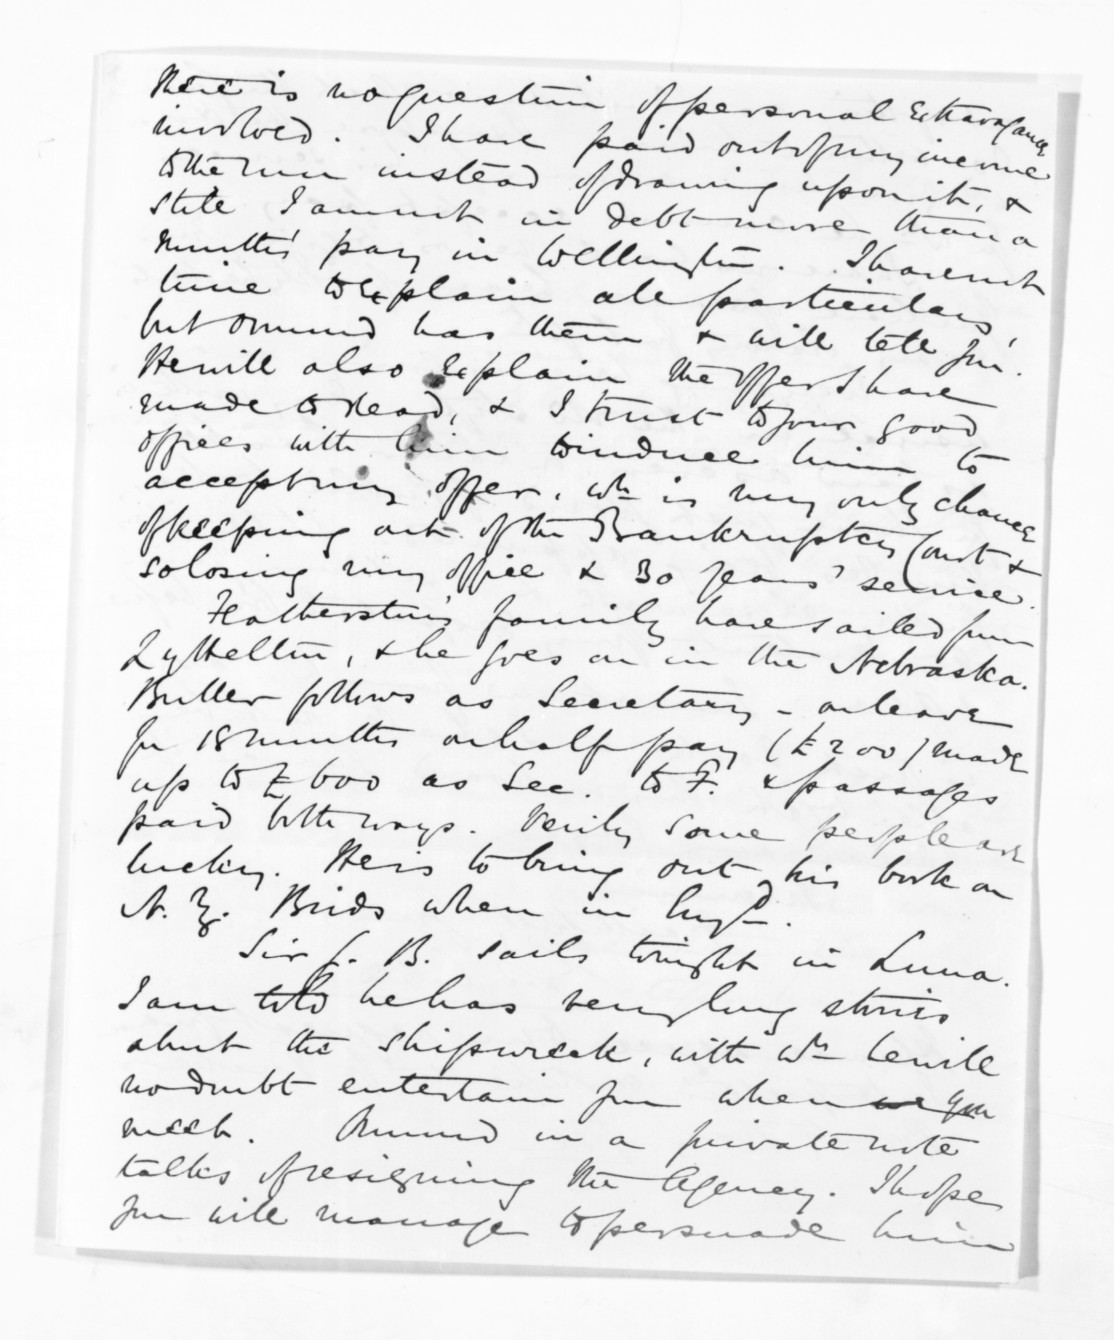 There is no question of personal extravagance
involved. I have paid out of my income
to the run instead of drawing upon it, &
still I am not in debt more than a
months' pay in Wellington. I have not
time to explain all particulars
but Ormond has them & will tell you.
He will also explain the offer I have
made to Read, & I trust to your good
offices with him to induce him to
accept my offer, wh is my only chance
of keeping out of the Bankruptcy Court &
so losing my office & 30 years' service.
Featherston's family have sailed from
Lyttelton, & he goes on in the Nebraska.
Buller follows as Secretary - on leave
for 18 months on half pay (£200) made
up to £600 as Sec. to F. & passages
paid both ways. Verily some people are
lucky. He is to bring out his book on
N. Z. Birds when in Engd.
Sir G. B. sails tonight in Luna.
I am told he has very long stories
about the shipwreck, with wh he will
no doubt entertain you when we you
meet. Ormond in a private note
talks of resigning the Agency. I hope
you will manage to persuade him